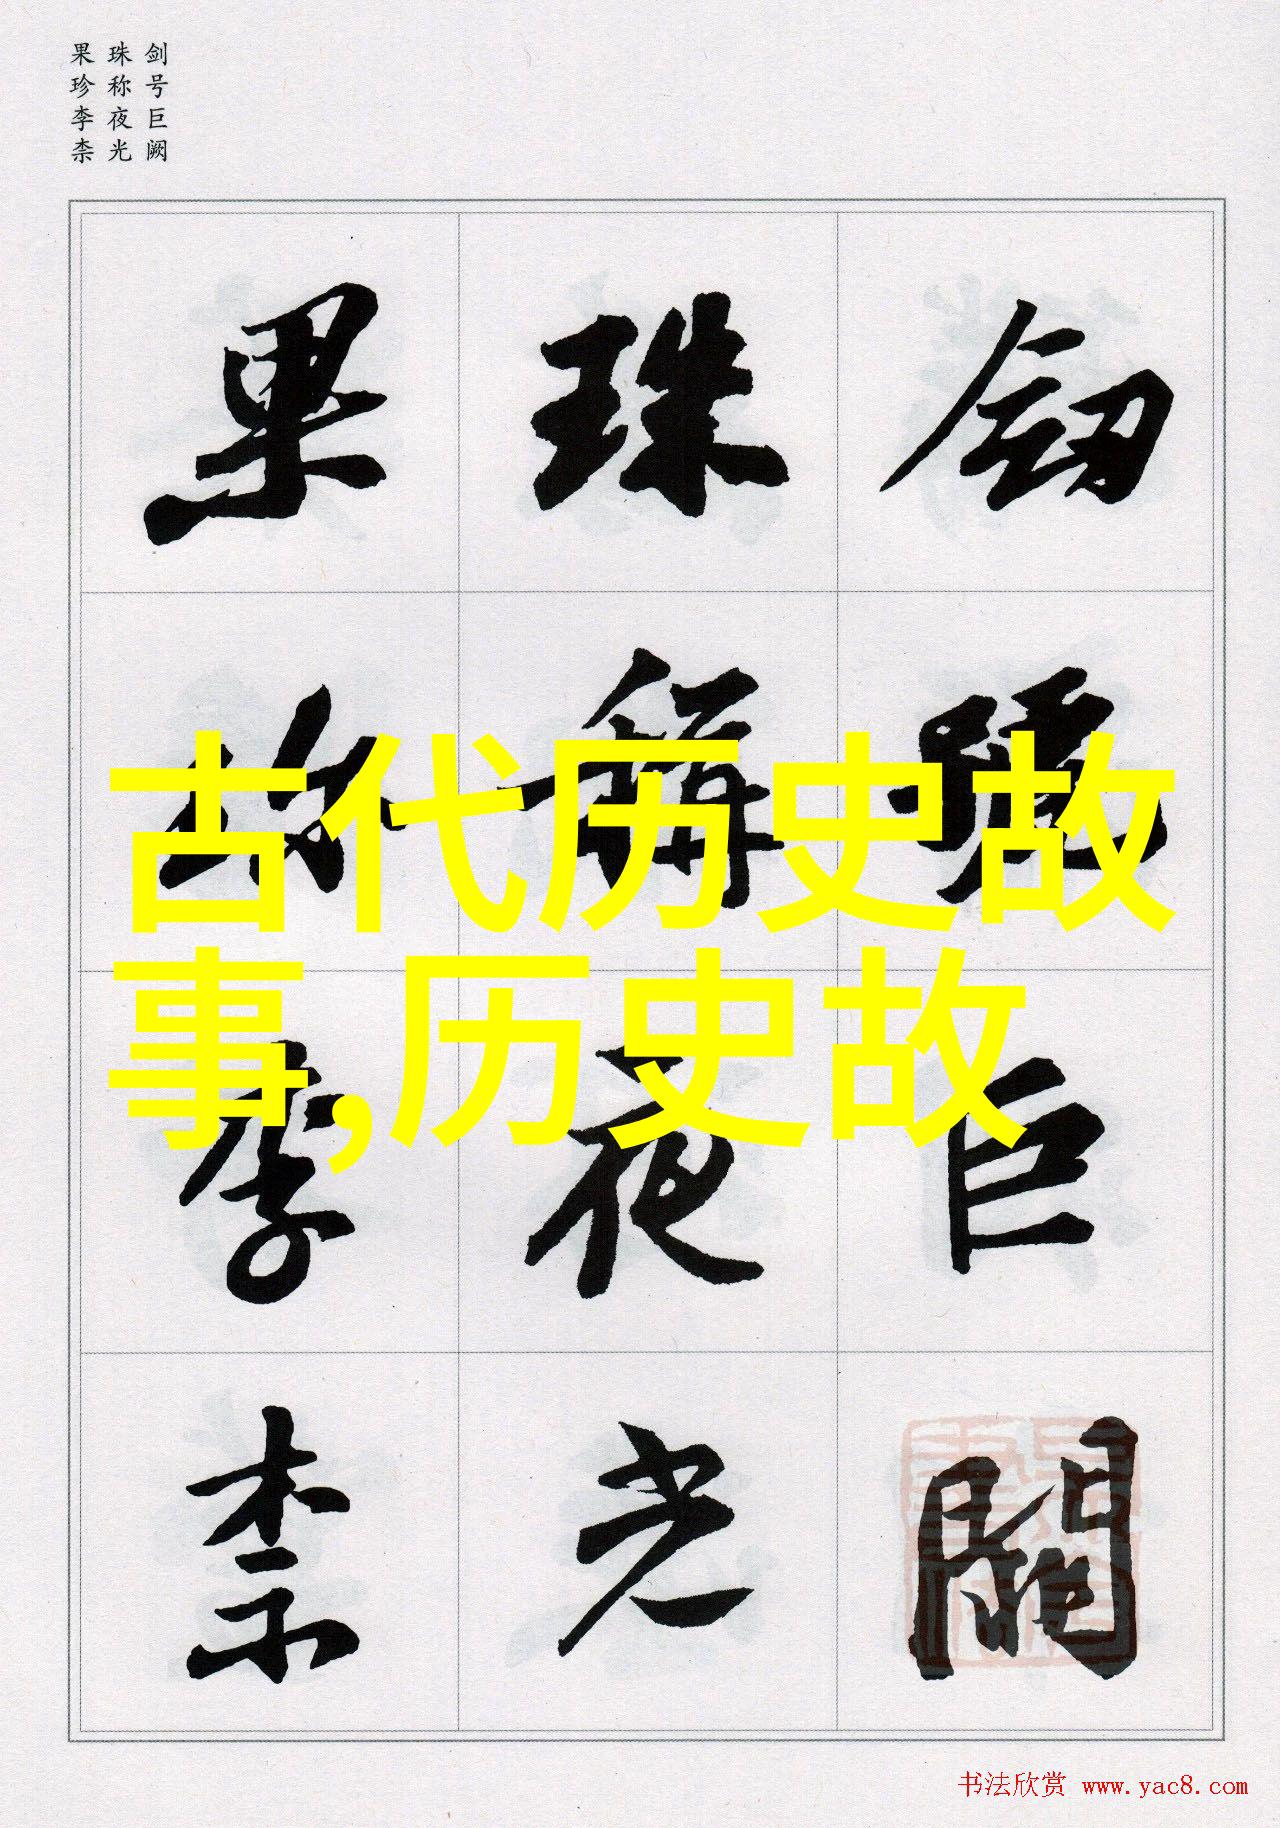 剑号巨阙
珠称夜光
果珍李柰
劒號巨闕
珠稱夜光
果珍李柰
古代历史故
事,历史故
书法欣赏 www.yac8.com